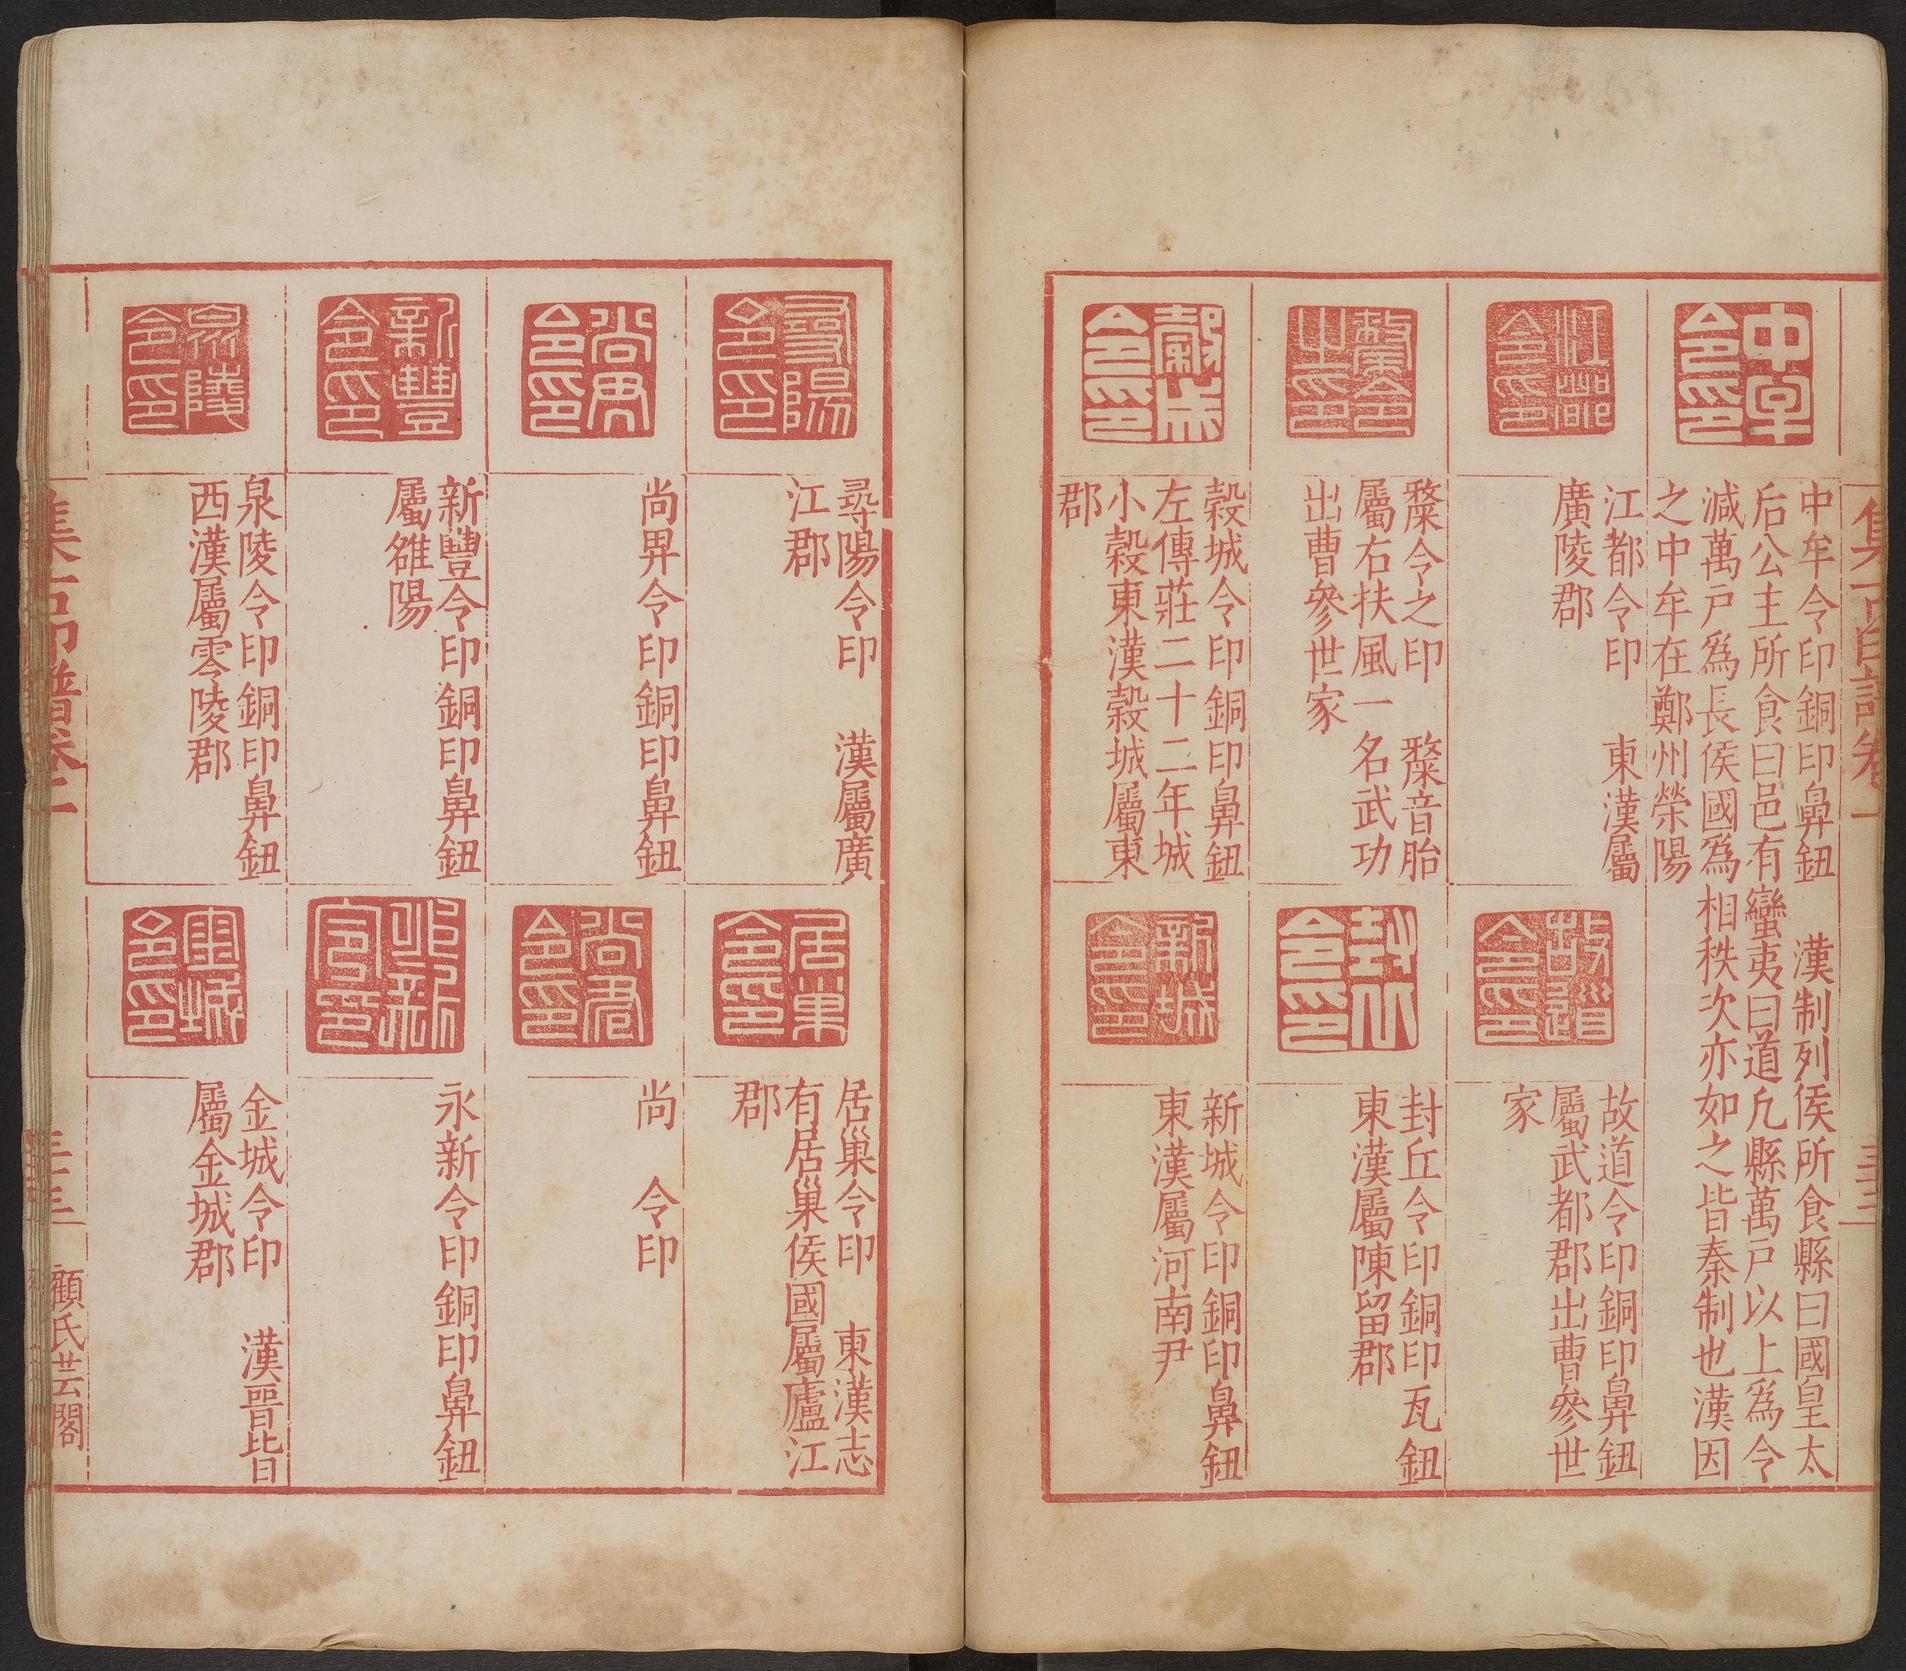 集古印譜卷二
中牟令印
中牟令印銅印鼻鈕　漢制列侯所食縣曰國皇太
后公主所食曰邑有蠻夷曰道凡縣萬戶以上為令
減萬戶爲長侯國爲相秩次亦如之皆秦制也漢因
之中牟在鄭州滎陽
江都令印
江都令印　東漢屬
廣陵郡
故道令印
故道令印銅印鼻鈕
屬武都郡出曹參世
家
斄令之印
斄令之印　斄音胎
屬右扶風一名武功
出曹參世家
封丘令印
封丘令印銅印瓦鈕
東漢屬陳留郡
穀城令印
穀城令印銅印鼻鈕
左傳莊二十二年城
小穀東漢穀城屬東
郡
新城令印
新城令印銅印鼻鈕
東漢屬河南尹
尋陽令印
尋陽令印　漢屬廣
江郡
居巢令印
居巢令印　東漢志
有居巢侯國屬廬江
郡
尚畀令印銅印鼻鈕
尚　令印
新豐令印
新豐令印銅印鼻鈕
屬雒陽
永新令印銅印鼻鈕
泉陵令印
泉陵令印銅印鼻鈕
西漢屬零陵郡
金城令印
金城令印　漢晉皆
屬金城郡
集古印譜卷二
顧氏芸閣